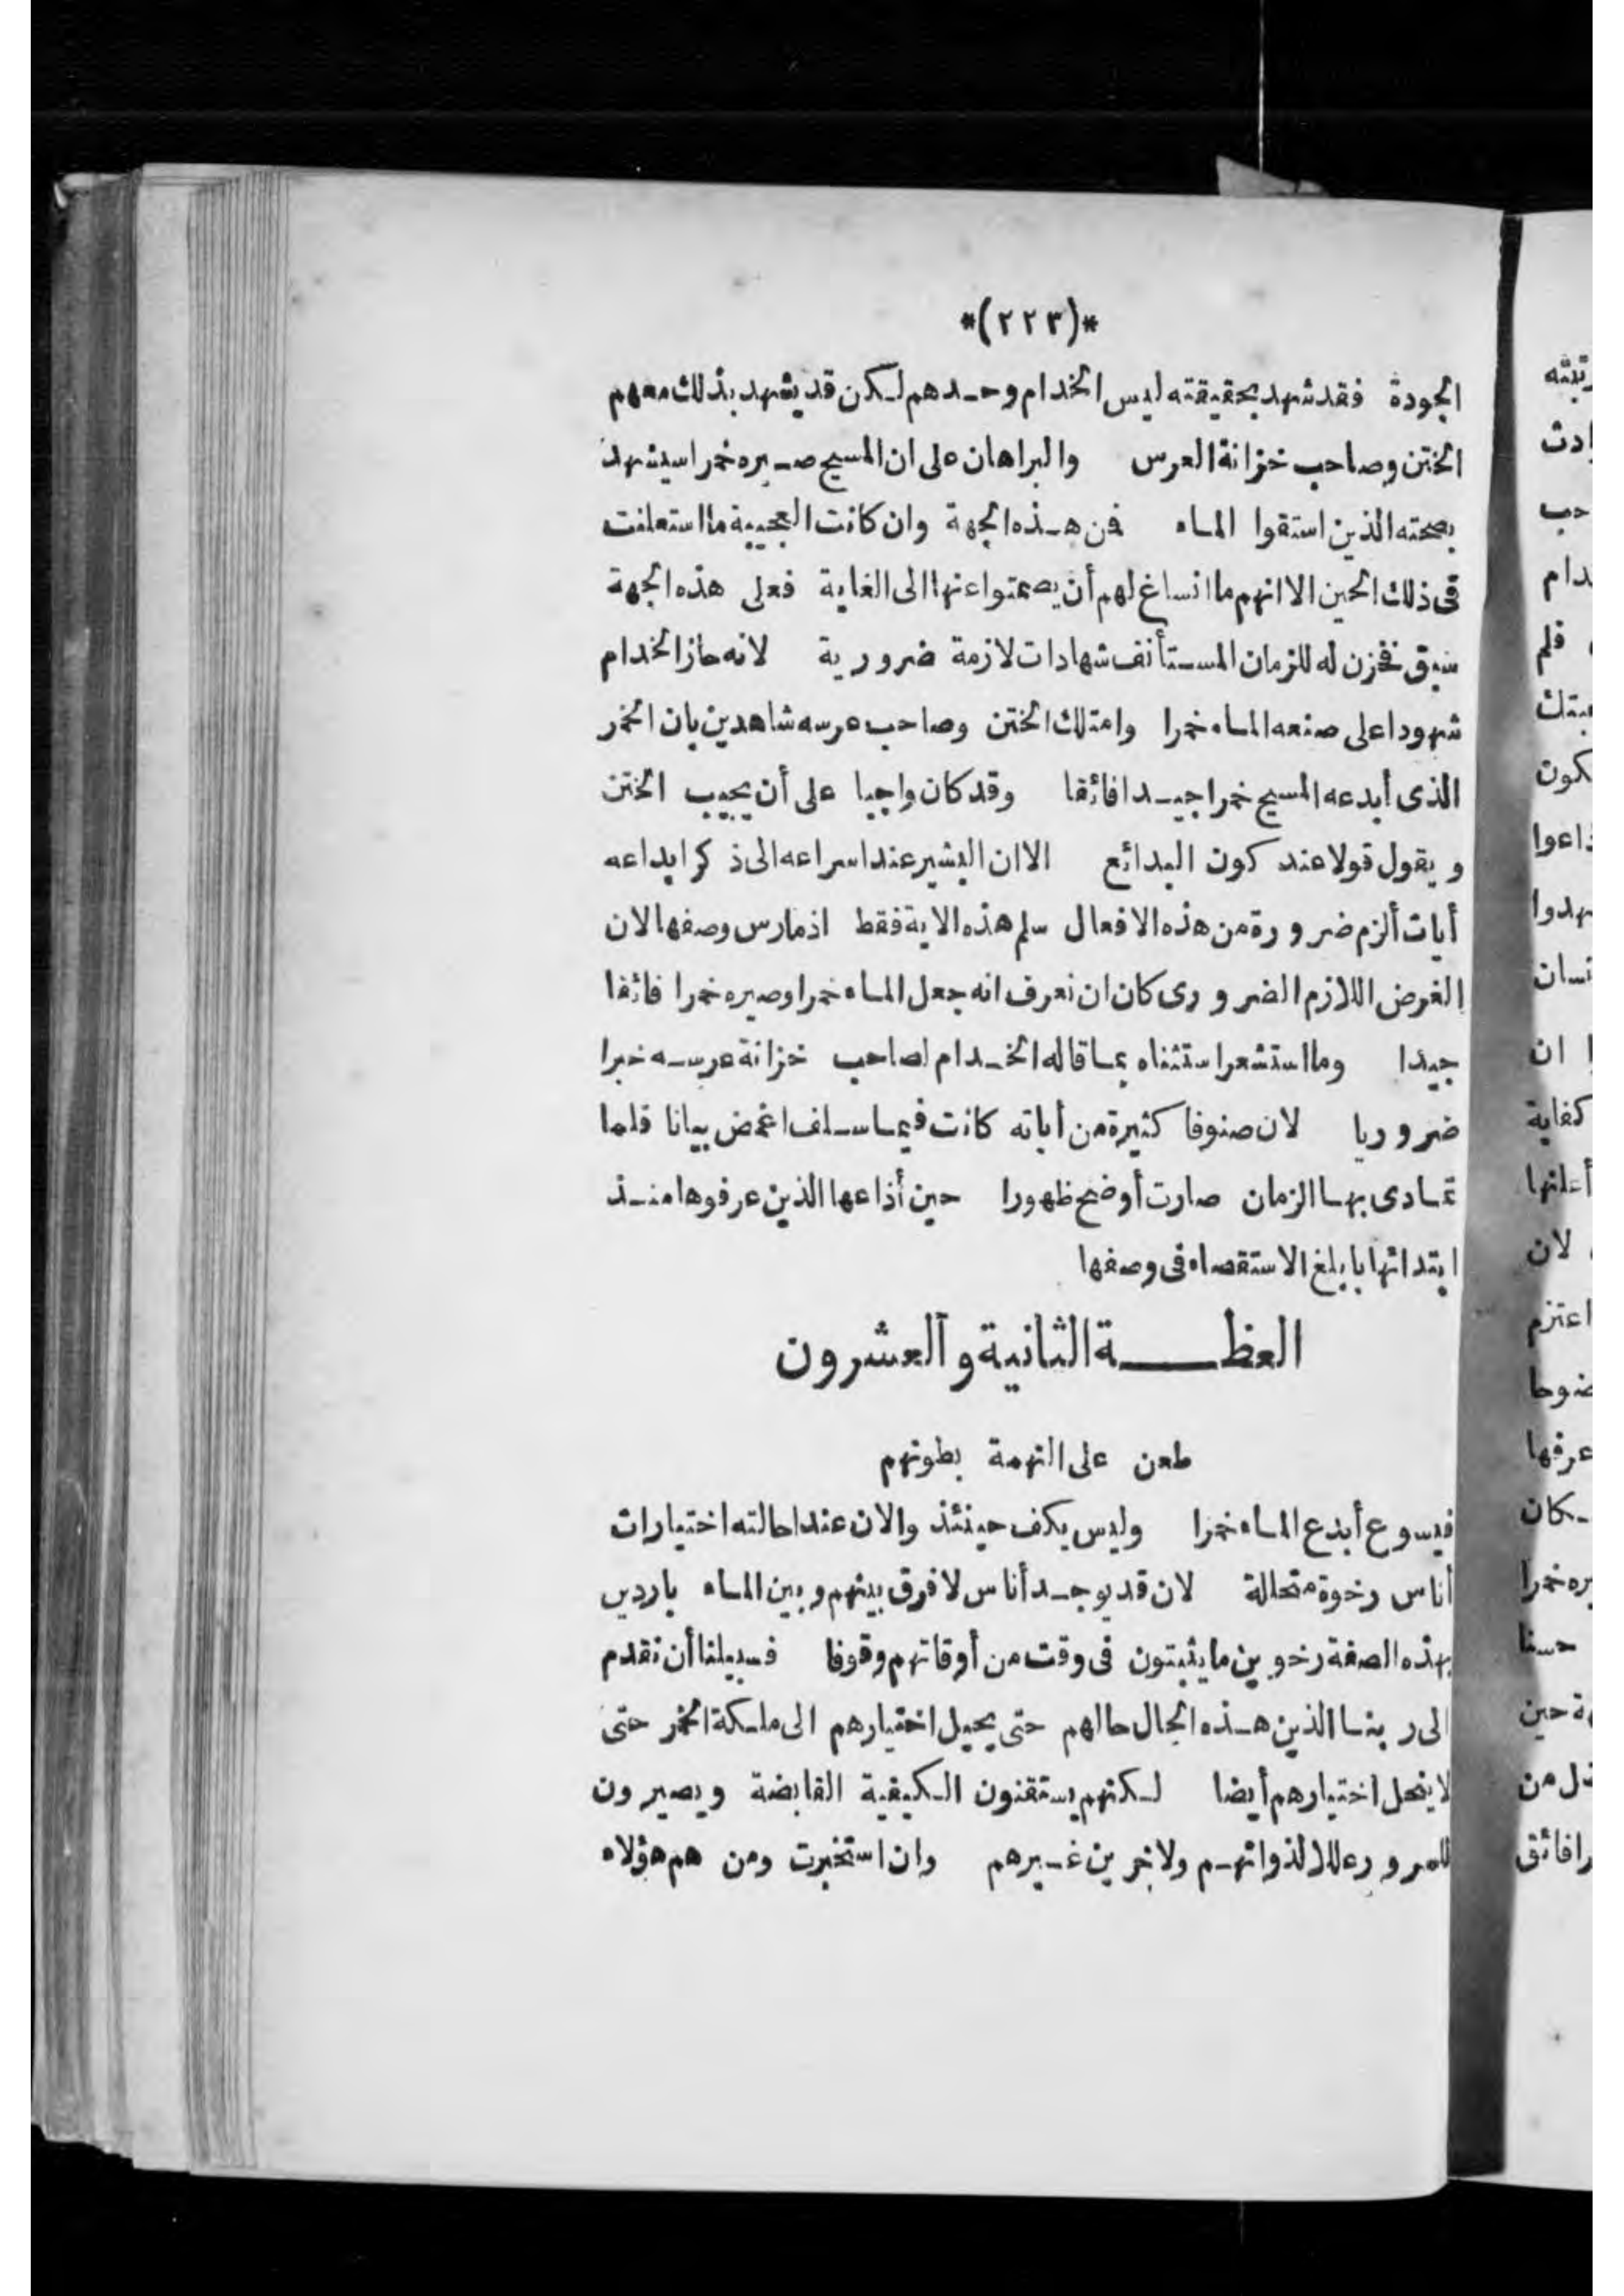 *(٢٢٣)*
الجودة فقد شهد بحقيقته ليس الخدام وحدهم لكن قد يشهد بذلك معهم
الختن وصاحب خزانة العرس والبراهان على ان المسيح صيره خمرا سيشهد
بصحته الذين استقوا الماء فمن هذه الجهة وان كانت العجيبة ما استعلنت
فى ذلك الحين الا انهم ما انساغ لهم أن يصمتوا عنها الى الغاية فعلى هذه الجهة
سبق فخزن له للزمان المستأنف شهادات لازمة ضرورية لانه حاز الخدام
شهودا على صنعه الماء خمرا وامتلك الختن وصاحب عرسه شاهدين بان الخمر
الذى أبدعه المسيح خمرا جيدا فائقا وقد كان واجبا على أن يجيب الختن
ويقول قولا عند كون البدائع الا ان البشير عند اسراعه الى ذكر ابداعه
أيات ألزم ضرورة من هذه الافعال سلم هذه الاية فقط اذ مارس وصفها لان
الغرض اللازم الضرورى كان ان نعرف انه جعل الماء خمرا وصيره خمرا فائقا
جيدا وما استشعر استثناه بما قاله الخدام لصاحب خزانة عرسه خبرا
ضروريا لان صنوفا كثيرة من أياته كانت فيما سلف اغمض بيانا فلما
تمادى بها الزمان صارت أوضح ظهورا حين أذاعها الذين عرفوها منذ
ابتدائها بابلغ الاستقصاء فى وصفها
العظة الثانية والعشرون
طعن على النهمة بطونهم
فيسوع أبدع الماء خمرا وليس يكف حينئذ والان عند احالته اختيارات
أناس رخوة متحالة لان قد يوجد أناس لا فرق بينهم وبين الماء باردين
بهذه الصفة رخوين ما يثبتون فى وقت من أوقاتهم وقوفا فسبيلنا أن نقدم
الى ربنا الذين هذه الحال حالهم حتى يحيل اختيارهم الى ملكة الخمر حتى
لا ينحل اختيارهم أيضا لكنهم يستقنون الكيفية القابضة ويصيرون
للسرور عللا لذواتهم ولاخرين غيرهم وان استخبرت ومن هم هؤلاء